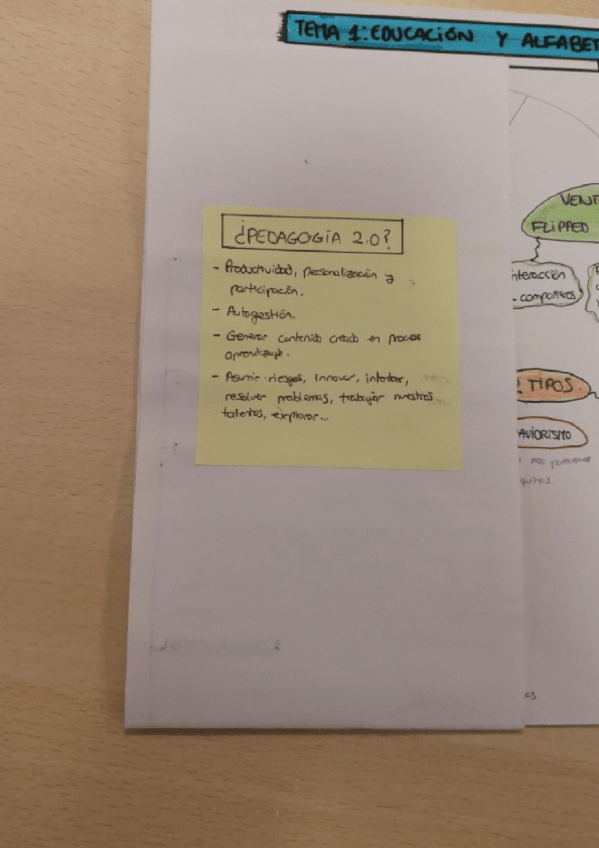 TEMA 1: EDUCACIÓN Y ALFABET
¿PEDAGOGÍA 2.0?
- Productividad, personalización y
participación.
- Autogestión.
- Generar contenido creado en proceso
aprendizaje.
- Asumir riesgos, innovar, intentar,
resolver problemas, trabajar nuestros
talentos, explorar...
VENT
FLIPPED
interacción
- compañeros
TIPOS
AVIORISMO
nos